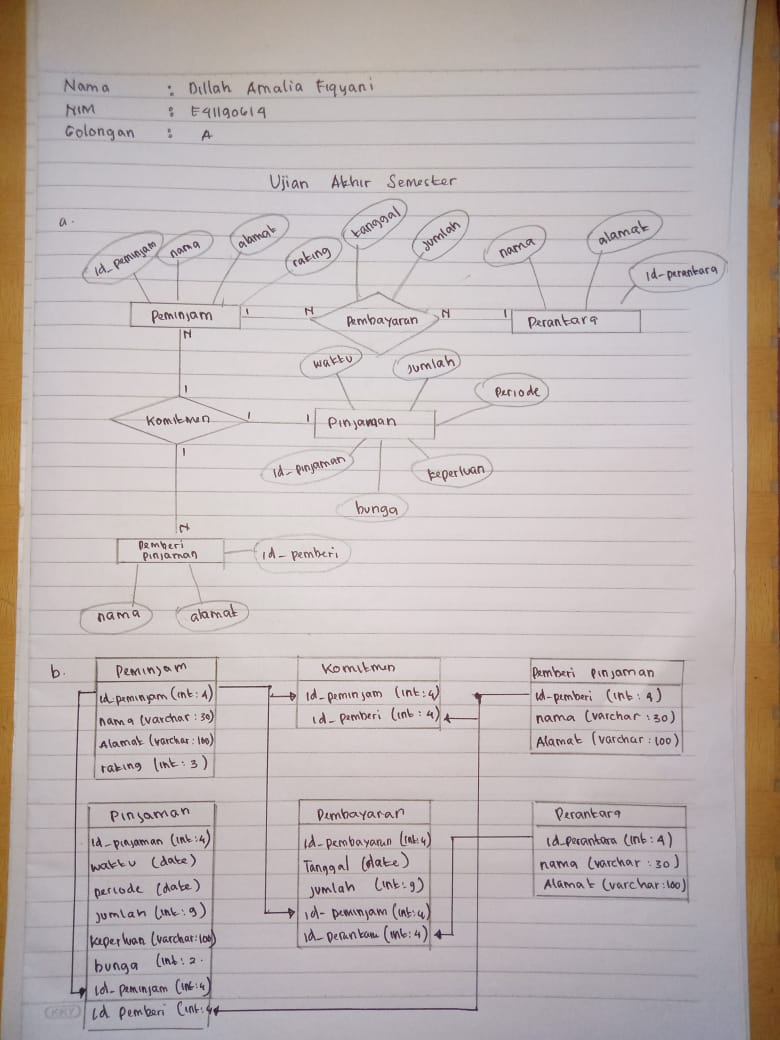 Nama : Dillah Amalia Fiqyani
NIM : E41190619
Golongan : A
Ujian Akhir Semester
a.
id_peminjam nama alamat rating tanggal jumlah nama alamat id-perantara
Peminjam 1 N Pembayaran N 1 Perantara
N
waktu jumlah periode
1
Komitmen 1 1 Pinjaman
1
id_pinjaman keperluan
bunga
N
Pemberi pinjaman id_pemberi
nama alamat
b.
Peminjam
id_peminjam (int: 4)
nama (varchar : 30)
Alamat (varchar : 100)
rating (int : 3)
Komitmen
id_peminjam (int : 4)
id_pemberi (int : 4)
Pemberi pinjaman
id-pemberi (int : 4)
nama (varchar : 30)
Alamat (varchar : 100)
Pinjaman
id_pinjaman (int:4)
waktu (date)
periode (date)
jumlah (int : 9)
keperluan (varchar:100)
bunga (int : 2.
id_peminjam (int:4)
id pemberi (int:4
Pembayaran
id_pembayaran (int:4)
Tanggal (date)
jumlah (int : 9)
id- peminjam (int:4)
id_perantara (int:4)
Perantara
id_perantara (int : 4)
nama (varchar : 30)
Alamat (varchar:100)
KKY